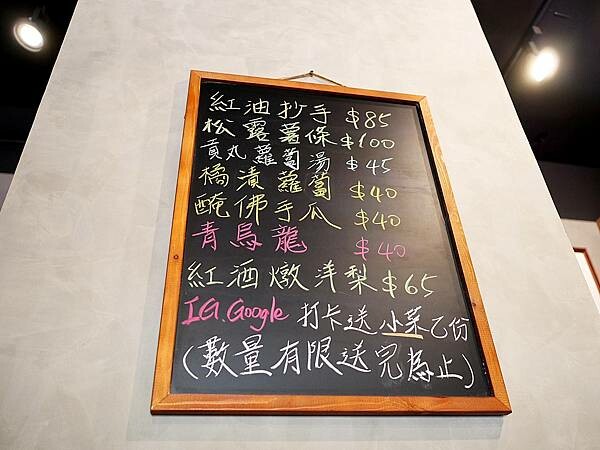 紅油抄手 $85
松露薯條 $100
貢丸蘿蔔湯 $45
橘漬蘿蔔 $40
醃佛手瓜 $40
青烏龍 $40
紅酒燉洋梨 $65
IG.Google 打卡送小菜乙份
(數量有限送完為止)